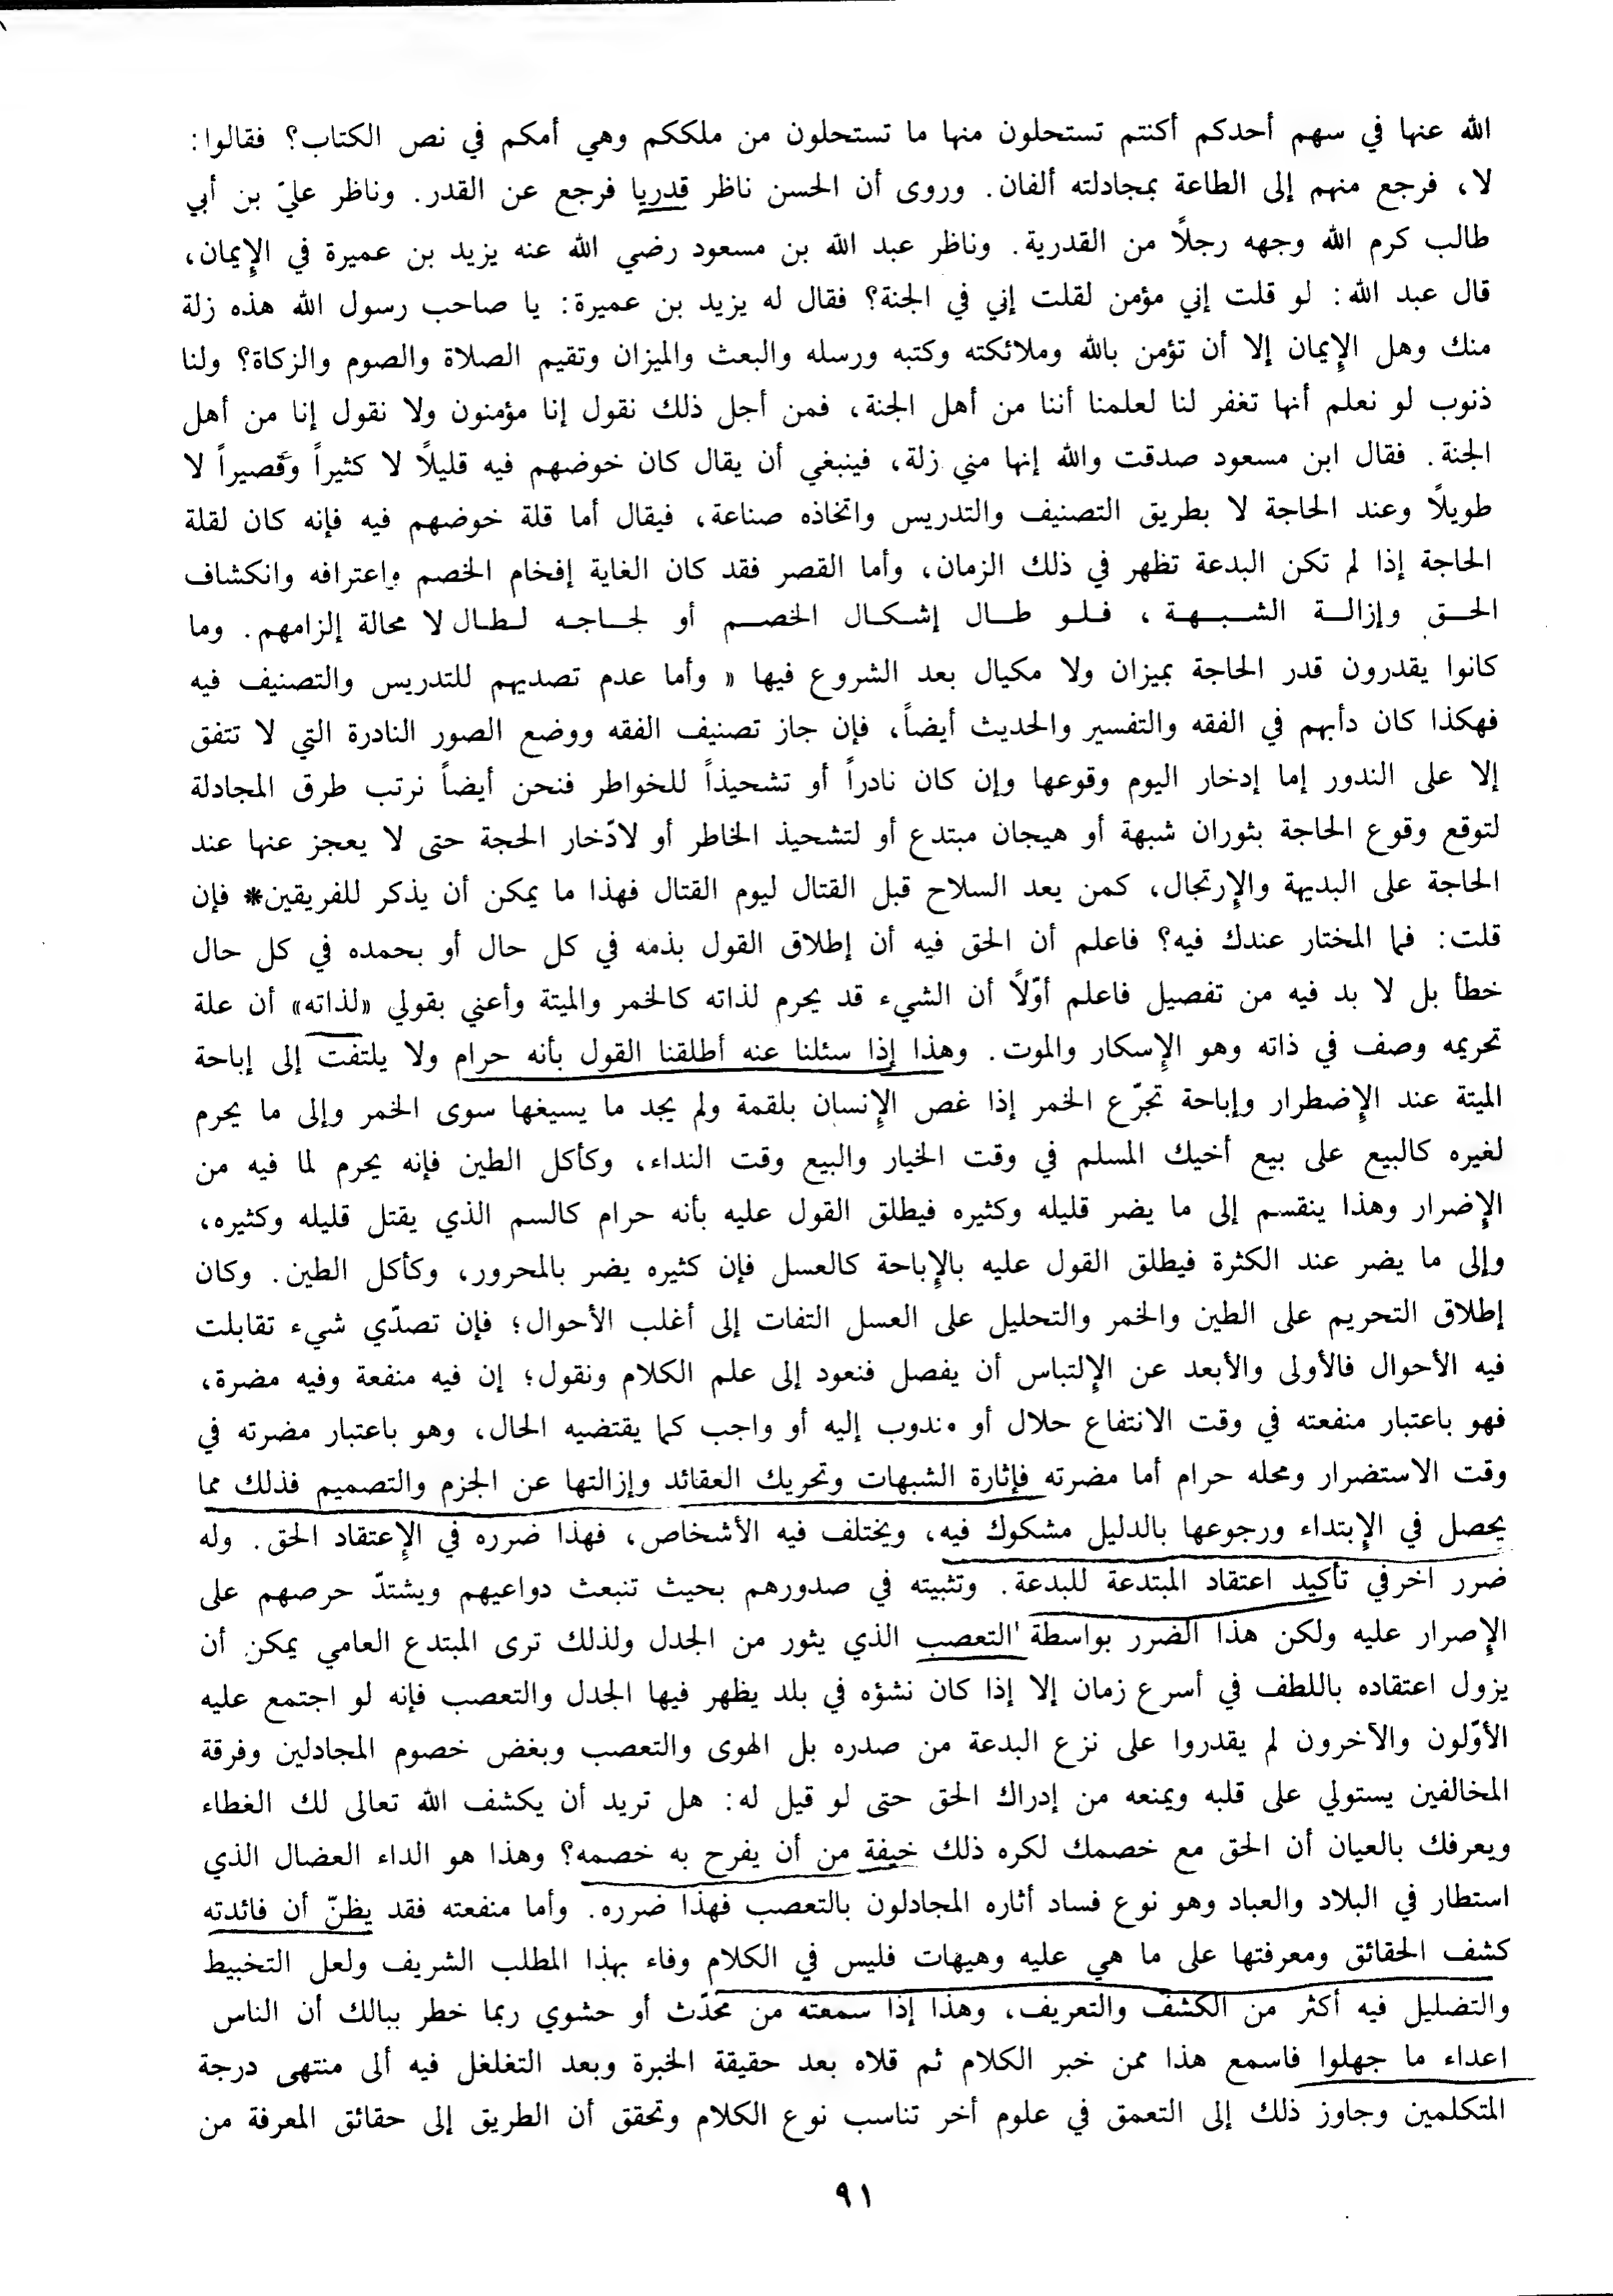 الله عنها في سهم أحدكم أكنتم تستحلون منها ما تستحلون من ملككم وهي أمكم في نص الكتاب؟ فقالوا:
لا، فرجع منهم إلى الطاعة بمجادلته ألفان. وروى أن الحسن ناظر قدريا فرجع عن القدر. وناظر عليّ بن أبي
طالب كرم الله وجهه رجلاً من القدرية. وناظر عبد الله بن مسعود رضي الله عنه يزيد بن عميرة في الإيمان،
قال عبد الله: لو قلت إني مؤمن لقلت إني في الجنة؟ فقال له يزيد بن عميرة: يا صاحب رسول الله هذه زلة
منك وهل الإيمان إلا أن تؤمن بالله وملائكته وكتبه ورسله والبعث والميزان وتقيم الصلاة والصوم والزكاة؟ ولنا
ذنوب لو نعلم أنها تغفر لنا لعلمنا أننا من أهل الجنة، فمن أجل ذلك نقول إنا مؤمنون ولا نقول إنا من أهل
الجنة. فقال ابن مسعود صدقت والله إنها مني زلة، فينبغي أن يقال كان خوضهم فيه قليلاً لا كثيراً وقصيراً لا
طويلاً وعند الحاجة لا بطريق التصنيف والتدريس واتخاذه صناعة، فيقال أما قلة خوضهم فيه فإنه كان لقلة
الحاجة إذا لم تكن البدعة تظهر في ذلك الزمان، وأما القصر فقد كان الغاية إفخام الخصم واعترافه وانكشاف
الحق وإزالة الشبهة، فلو طال إشكال الخصم أو لجاجه لطال لا محالة إلزامهم. وما
كانوا يقدرون قدر الحاجة بميزان ولا مكيال بعد الشروع فيها « وأما عدم تصديهم للتدريس والتصنيف فيه
فهكذا كان دأبهم في الفقه والتفسير والحديث أيضاً، فإن جاز تصنيف الفقه ووضع الصور النادرة التي لا تتفق
إلا على الندور إما إدخار اليوم وقوعها وإن كان نادراً أو تشحيذاً للخواطر فنحن أيضاً نرتب طرق المجادلة
لتوقع وقوع الحاجة بثوران شبهة أو هيجان مبتدع أو لتشحيذ الخاطر أو لادّخار الحجة حتى لا يعجز عنها عند
الحاجة على البديهة والإرتجال، كمن يعد السلاح قبل القتال ليوم القتال فهذا ما يمكن أن يذكر للفريقين* فإن
قلت: فما المختار عندك فيه؟ فاعلم أن الحق فيه أن إطلاق القول بذمه في كل حال أو بحمده في كل حال
خطأ بل لا بد فيه من تفصيل فاعلم أوّلاً أن الشيء قد يحرم لذاته كالخمر والميتة وأعني بقولي «لذاته» أن علة
تحريمه وصف في ذاته وهو الإسكار والموت. وهذا إذا سئلنا عنه أطلقنا القول بأنه حرام ولا يلتفت إلى إباحة
الميتة عند الإضطرار وإباحة تجرّع الخمر إذا غص الإنسان بلقمة ولم يجد ما يسيغها سوى الخمر وإلى ما يحرم
لغيره كالبيع على بيع أخيك المسلم في وقت الخيار والبيع وقت النداء، وكأكل الطين فإنه يحرم لما فيه من
الإضرار وهذا ينقسم إلى ما يضر قليله وكثيره فيطلق القول عليه بأنه حرام كالسم الذي يقتل قليله وكثيره،
وإلى ما يضر عند الكثرة فيطلق القول عليه بالإباحة كالعسل فإن كثيره يضر بالمحرور، وكأكل الطين. وكان
إطلاق التحريم على الطين والخمر والتحليل على العسل التفات إلى أغلب الأحوال؛ فإن تصدّي شيء تقابلت
فيه الأحوال فالأولى والأبعد عن الإلتباس أن يفصل فنعود إلى علم الكلام ونقول؛ إن فيه منفعة وفيه مضرة،
فهو باعتبار منفعته في وقت الانتفاع حلال أو مندوب إليه أو واجب كما يقتضيه الحال، وهو باعتبار مضرته في
وقت الاستضرار ومحله حرام أما مضرته فإثارة الشبهات وتحريك العقائد وإزالتها عن الجزم والتصميم فذلك مما
يحصل في الإبتداء ورجوعها بالدليل مشكوك فيه، ويختلف فيه الأشخاص، فهذا ضرره في الإعتقاد الحق. وله
ضرر اخرفي تأكيد اعتقاد المبتدعة للبدعة. وتثبيته في صدورهم بحيث تنبعث دواعيهم ويشتدّ حرصهم على
الإصرار عليه ولكن هذا الضرر بواسطة التعصب الذي يثور من الجدل ولذلك ترى المبتدع العامي يمكن أن
يزول اعتقاده باللطف في أسرع زمان إلا إذا كان نشؤه في بلد يظهر فيها الجدل والتعصب فإنه لو اجتمع عليه
الأوّلون والآخرون لم يقدروا على نزع البدعة من صدره بل الهوى والتعصب وبغض خصوم المجادلين وفرقة
المخالفين يستولي على قلبه ويمنعه من إدراك الحق حتى لو قيل له: هل تريد أن يكشف الله تعالى لك الغطاء
ويعرفك بالعيان أن الحق مع خصمك لكره ذلك خيفة من أن يفرح به خصمه؟ وهذا هو الداء العضال الذي
استطار في البلاد والعباد وهو نوع فساد أثاره المجادلون بالتعصب فهذا ضرره. وأما منفعته فقد يظنّ أن فائدته
كشف الحقائق ومعرفتها على ما هي عليه وهيهات فليس في الكلام وفاء بهذا المطلب الشريف ولعل التخبيط
والتضليل فيه أكثر من الكشف والتعريف، وهذا إذا سمعته من محدّث أو حشوي ربما خطر ببالك أن الناس
اعداء ما جهلوا فاسمع هذا ممن خبر الكلام ثم قلاه بعد حقيقة الخبرة وبعد التغلغل فيه ألى منتهى درجة
المتكلمين وجاوز ذلك إلى التعمق في علوم أخر تناسب نوع الكلام وتحقق أن الطريق إلى حقائق المعرفة من
٩١